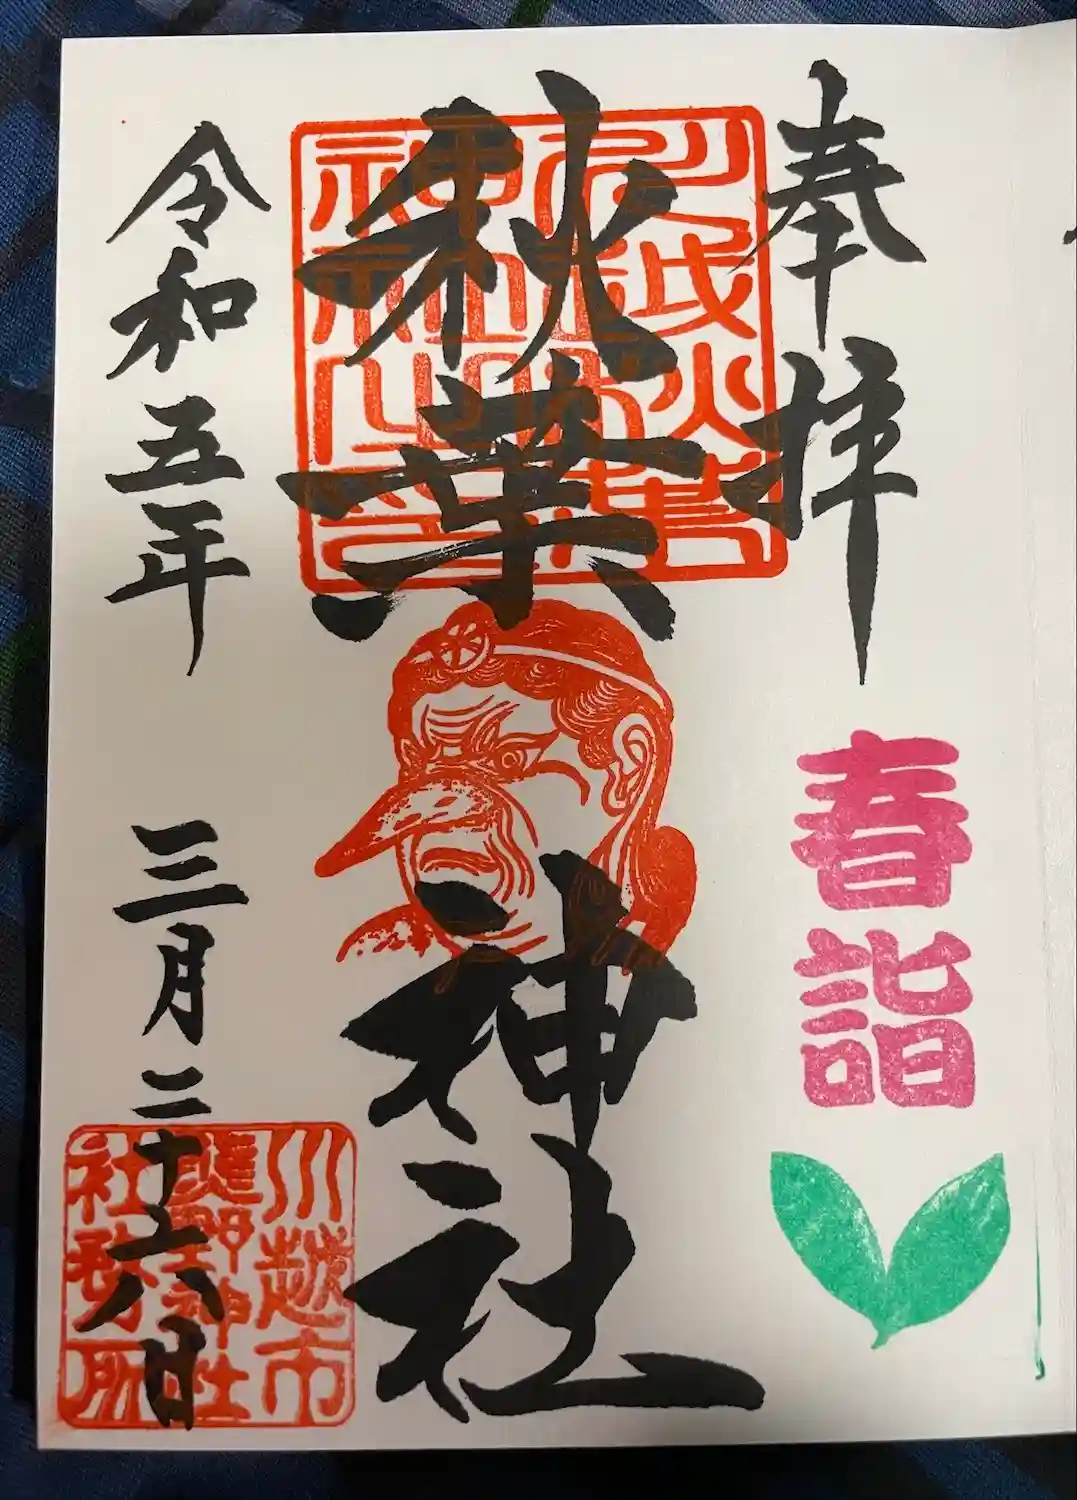 奉拝
春詣
秋葉神社
令和五年
三月二十六日
川越市
熊野神社
社務所